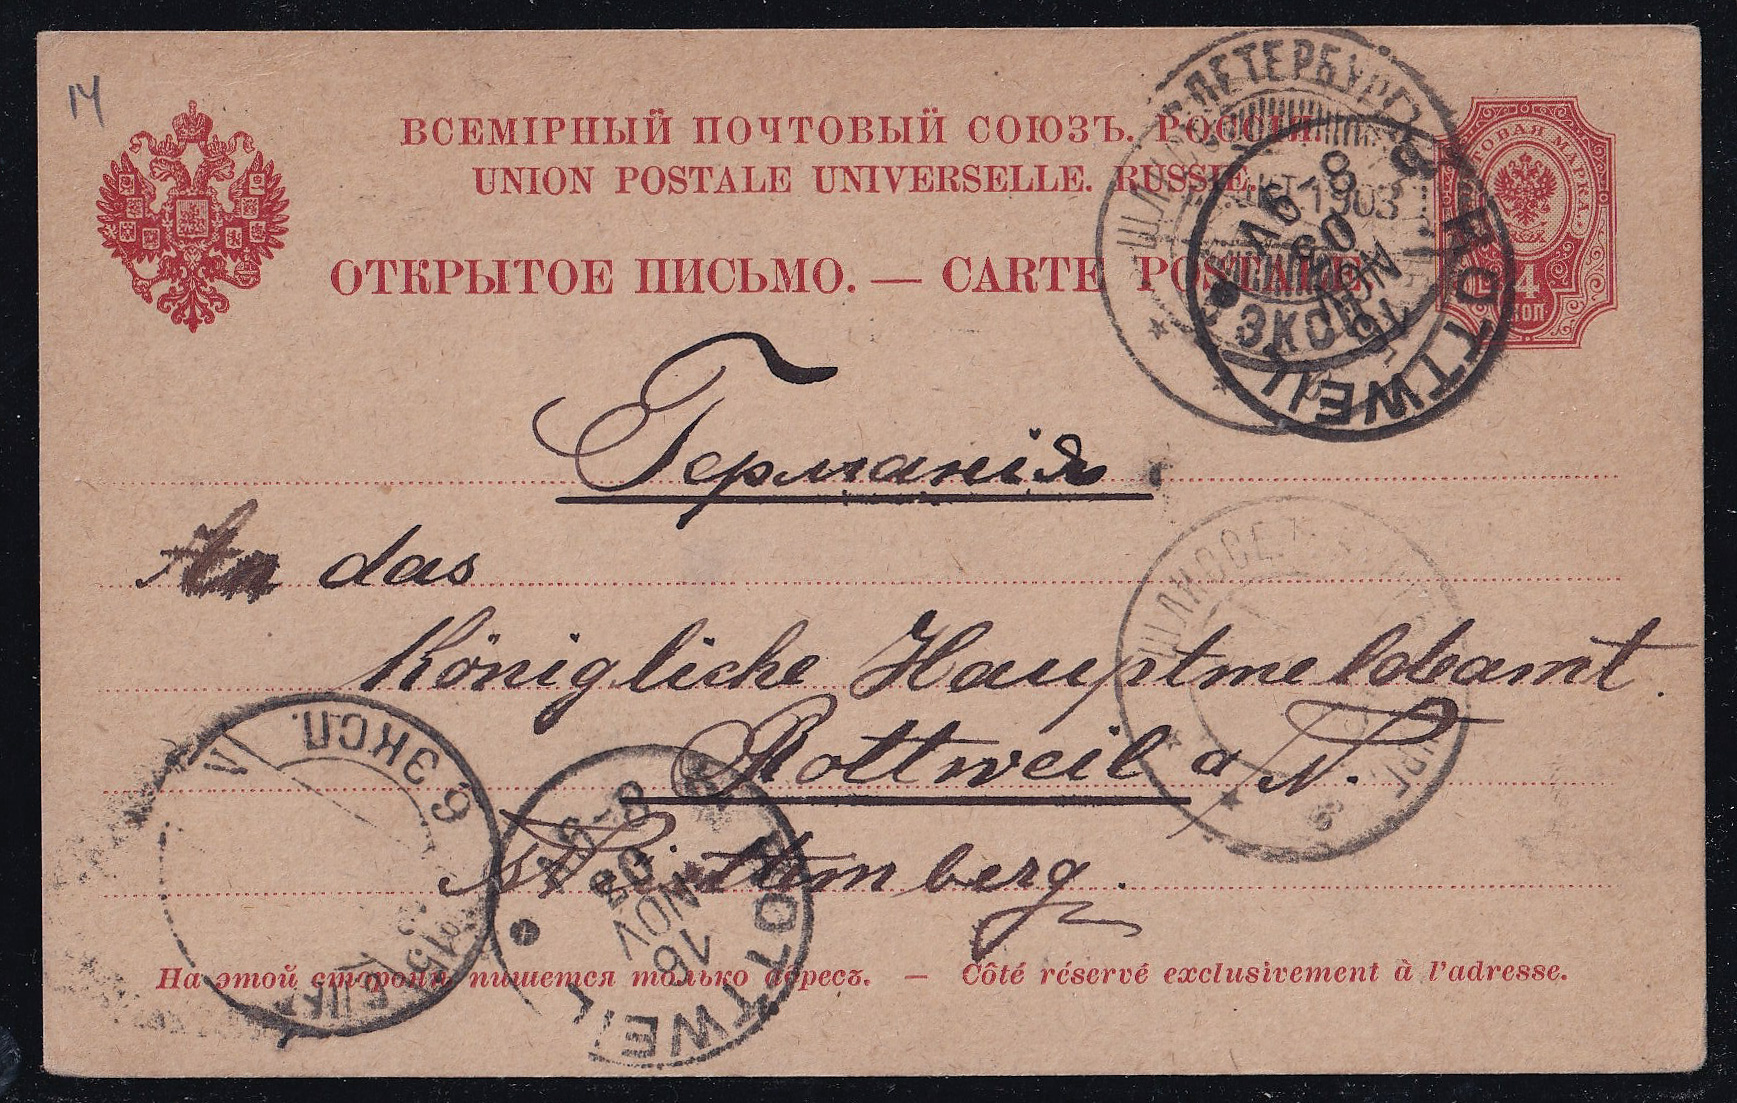 14
ВСЕМІРНЫЙ ПОЧТОВЫЙ СОЮЗЪ. РОССІЯ.
UNION POSTALE UNIVERSELLE. RUSSIE.
ОТКРЫТОЕ ПИСЬМО. — CARTE POSTALE.
ПОЧТОВАЯ МАРКА.
4
КОП
С.ПЕТЕРБУРГЪ
ОКТ. 1903
ЭКСП.
ROTTWEIL
16 NOV 03 8-9V
Германія
An das
Königliche Hauptmeldeamt.
Rottweil a/N.
Württemberg.
6 ЭКСП. VI
15
ROTTWEIL
16 NOV 03 8-9V
На этой сторонѣ пишется только адресъ. — Côté réservé exclusivement à l'adresse.